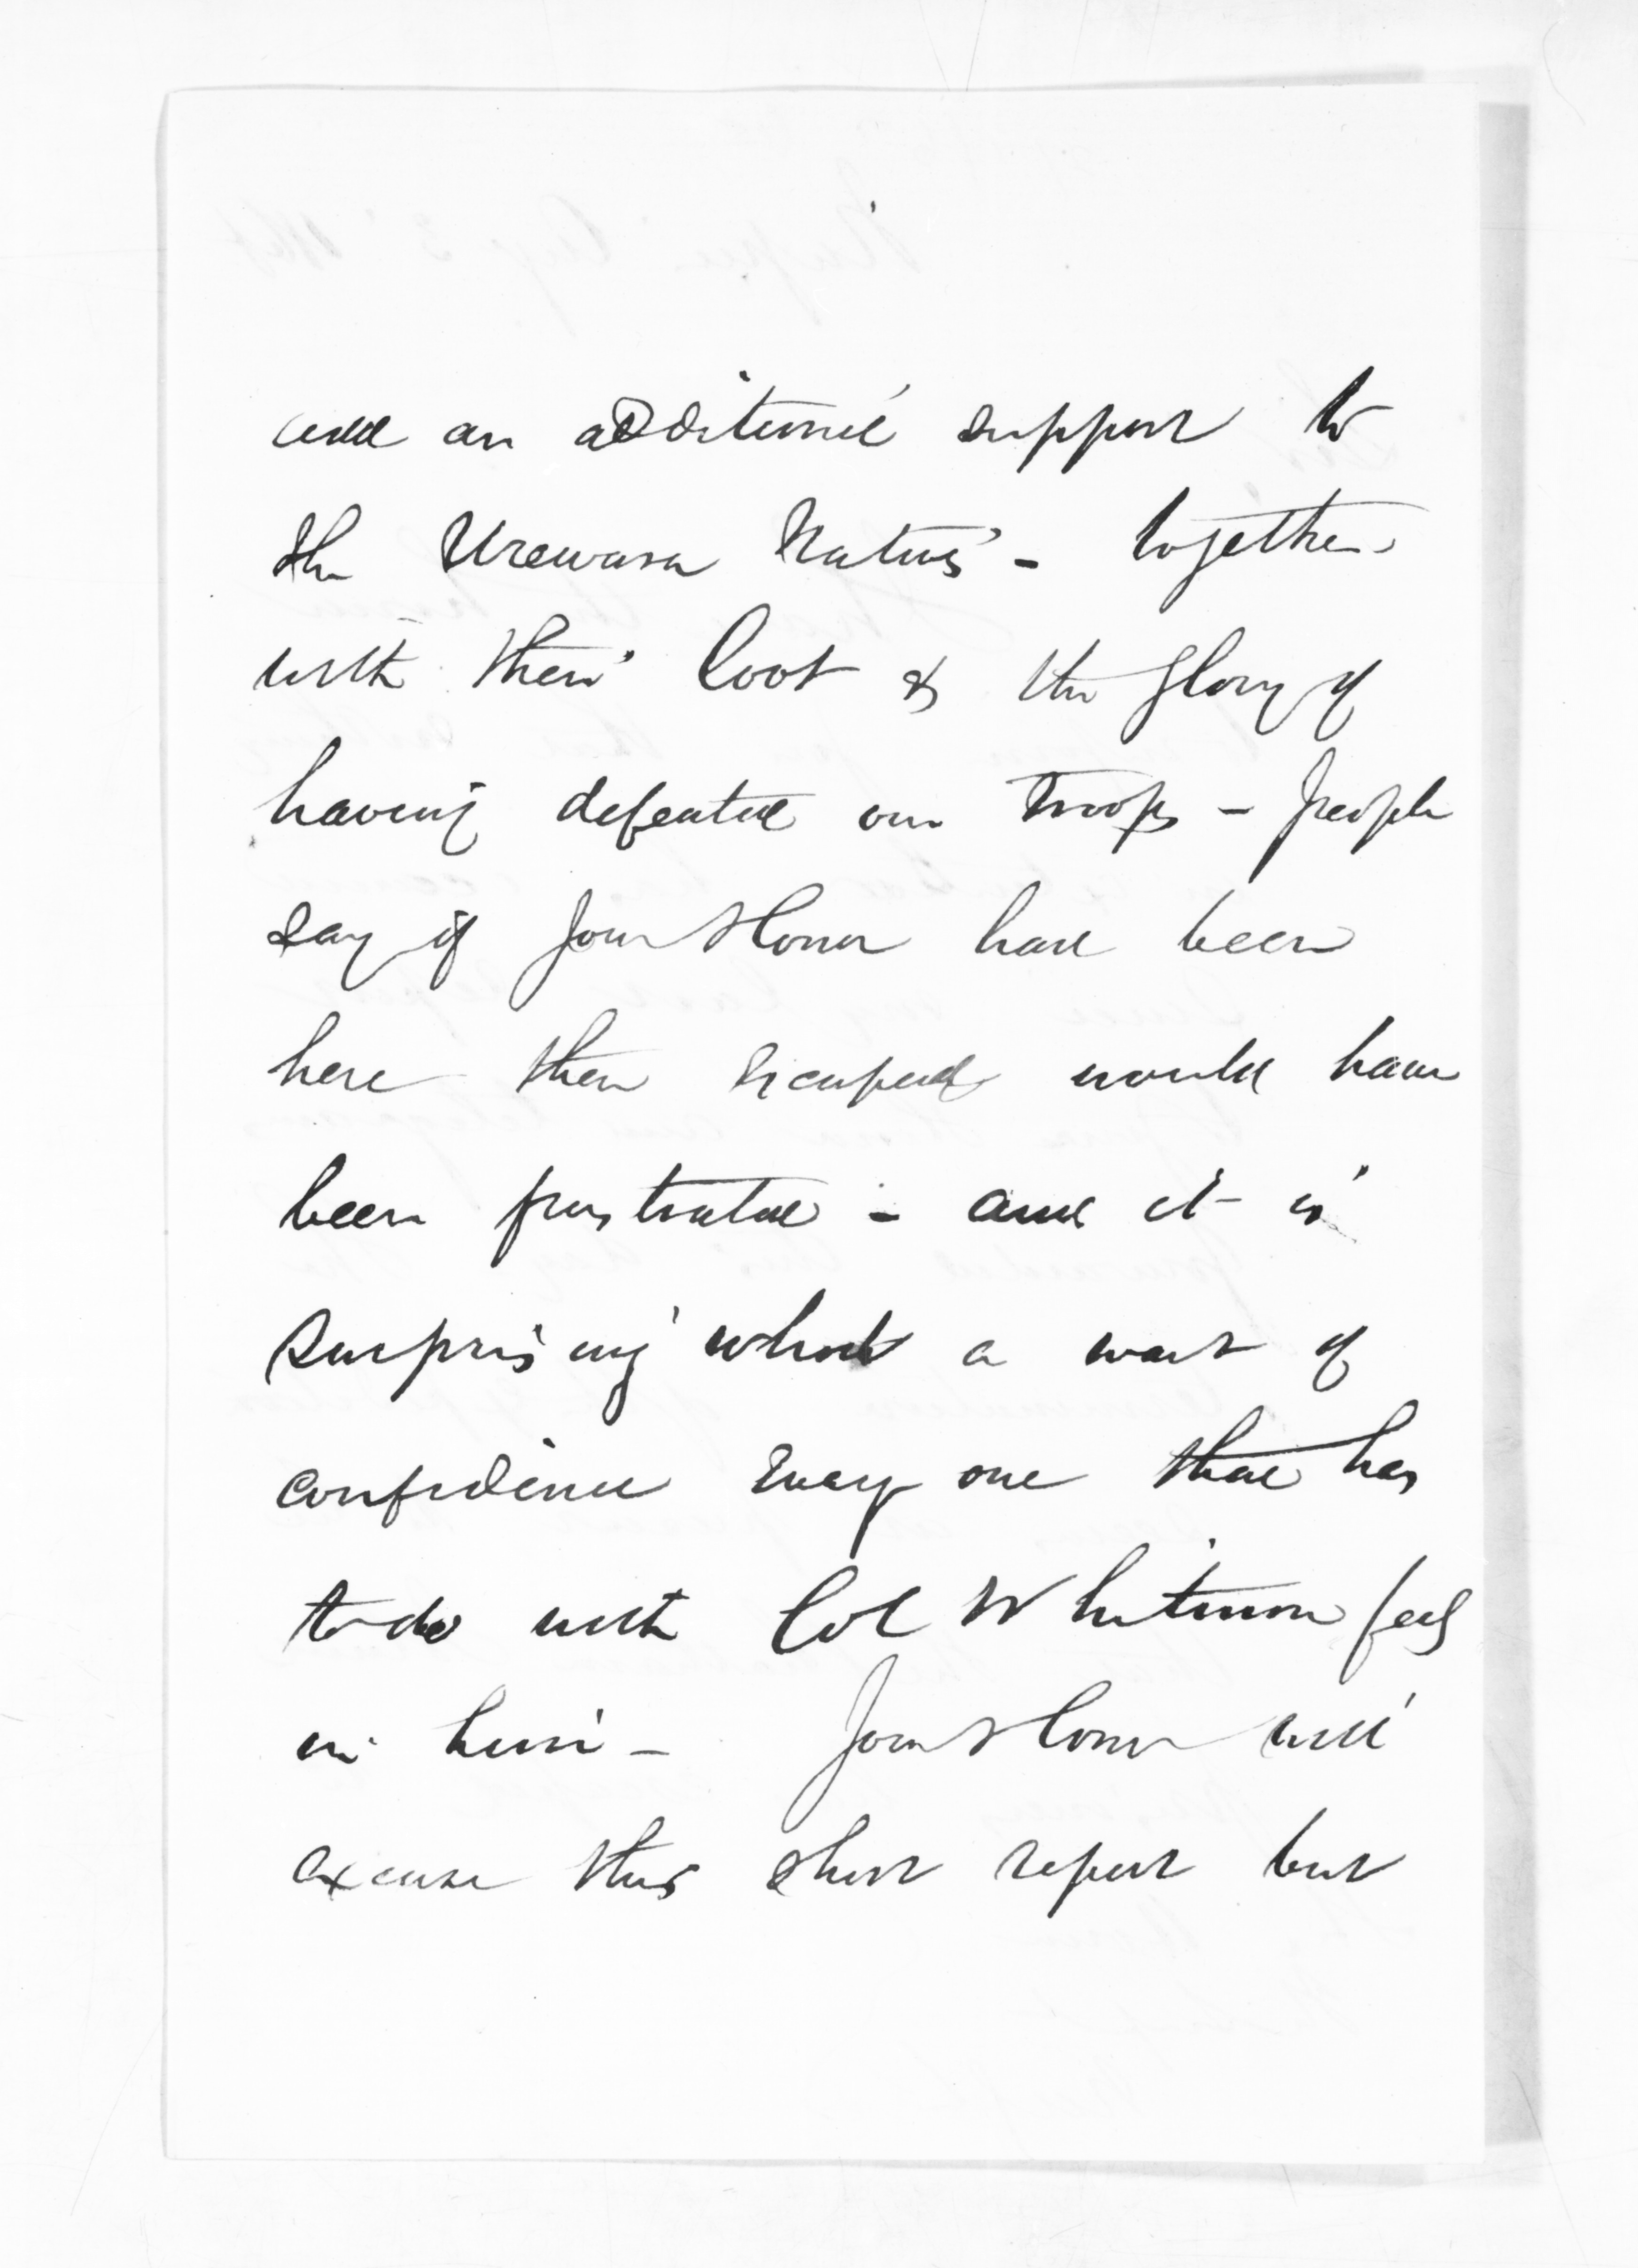 and an additional support to
the Urewera Natives - together
with their loot & the glory of
having defeated our troops - people
say if Your Honor had been
here their escapade would have
been frustrated - and it is
surprising what a want of
confidence every one that has
to do with Col Whitmore feels
in him - Your Honor will
excuse this short report but